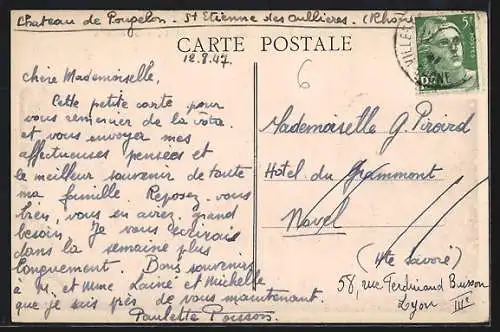 Chateau de Pougelon. St Etienne des Oullieres. (Rhône
CARTE POSTALE
12.8.47
6
5F
Chère Mademoiselle,
Cette petite carte pour
vous remercier de la votre
et vous envoyer mes
affectueuses pensées et
le meilleur souvenir de toute
ma famille. Reposez-vous
bien, vous en avez grand
besoin. Je vous écrirai
dans la semaine plus
longuement. Bons souvenirs
à M. et Mme Lainé et Michelle
que je sais près de vous maintenant.
Paulette Poisson.
Mademoiselle G. Piroird
Hotel du Grammont
Novel
(Hte Savoie)
58, rue Ferdinand Buisson
Lyon IIIe